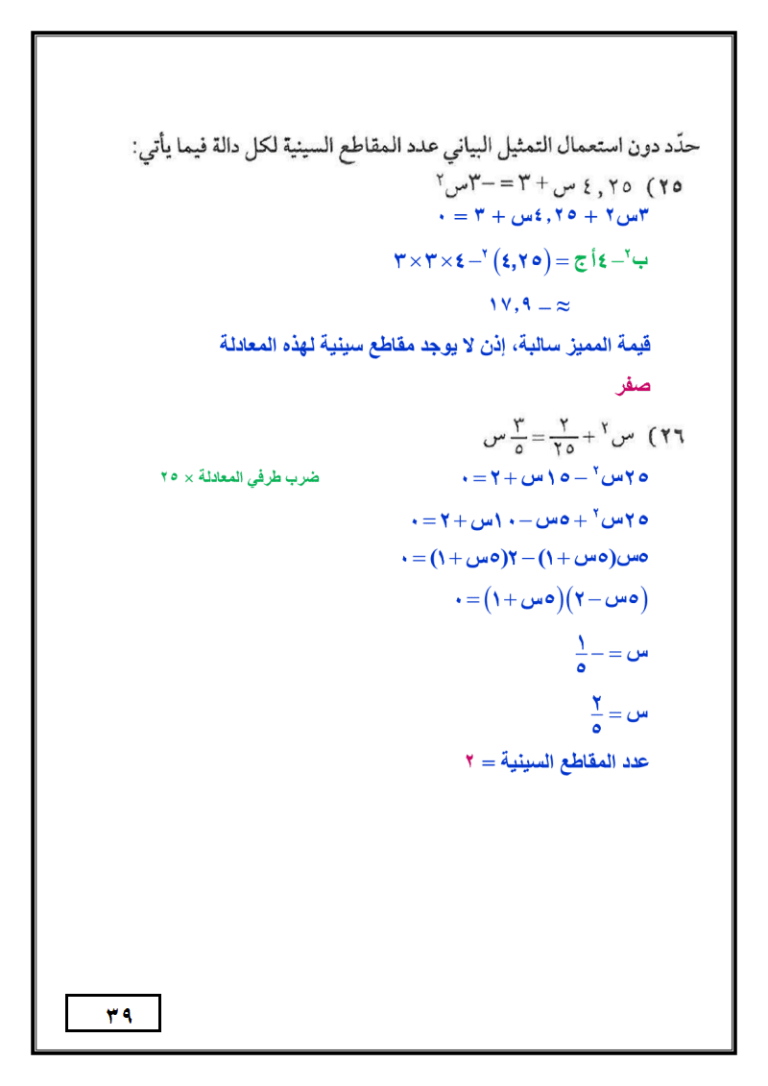 حدّد دون استعمال التمثيل البياني عدد المقاطع السينية لكل دالة فيما يأتي:
٢٥) ٤,٢٥ س + ٣ = −٣س٢
٣س٢ + ٤,٢٥س + ٣ = ٠
ب٢ − ٤أج = (٤,٢٥)٢ − ٤ × ٣ × ٣
≈ − ١٧,٩
قيمة المميز سالبة، إذن لا يوجد مقاطع سينية لهذه المعادلة
صفر
٢٦) س٢ + ٢/٢٥ = ٣/٥ س
٢٥س٢ − ١٥س + ٢ = ٠ ضرب طرفي المعادلة × ٢٥
٢٥س٢ + ٥س − ١٠س + ٢ = ٠
٥س(٥س + ١) − ٢(٥س + ١) = ٠
(٥س − ٢)(٥س + ١) = ٠
س = − ١/٥
س = ٢/٥
عدد المقاطع السينية = ٢
٣٩